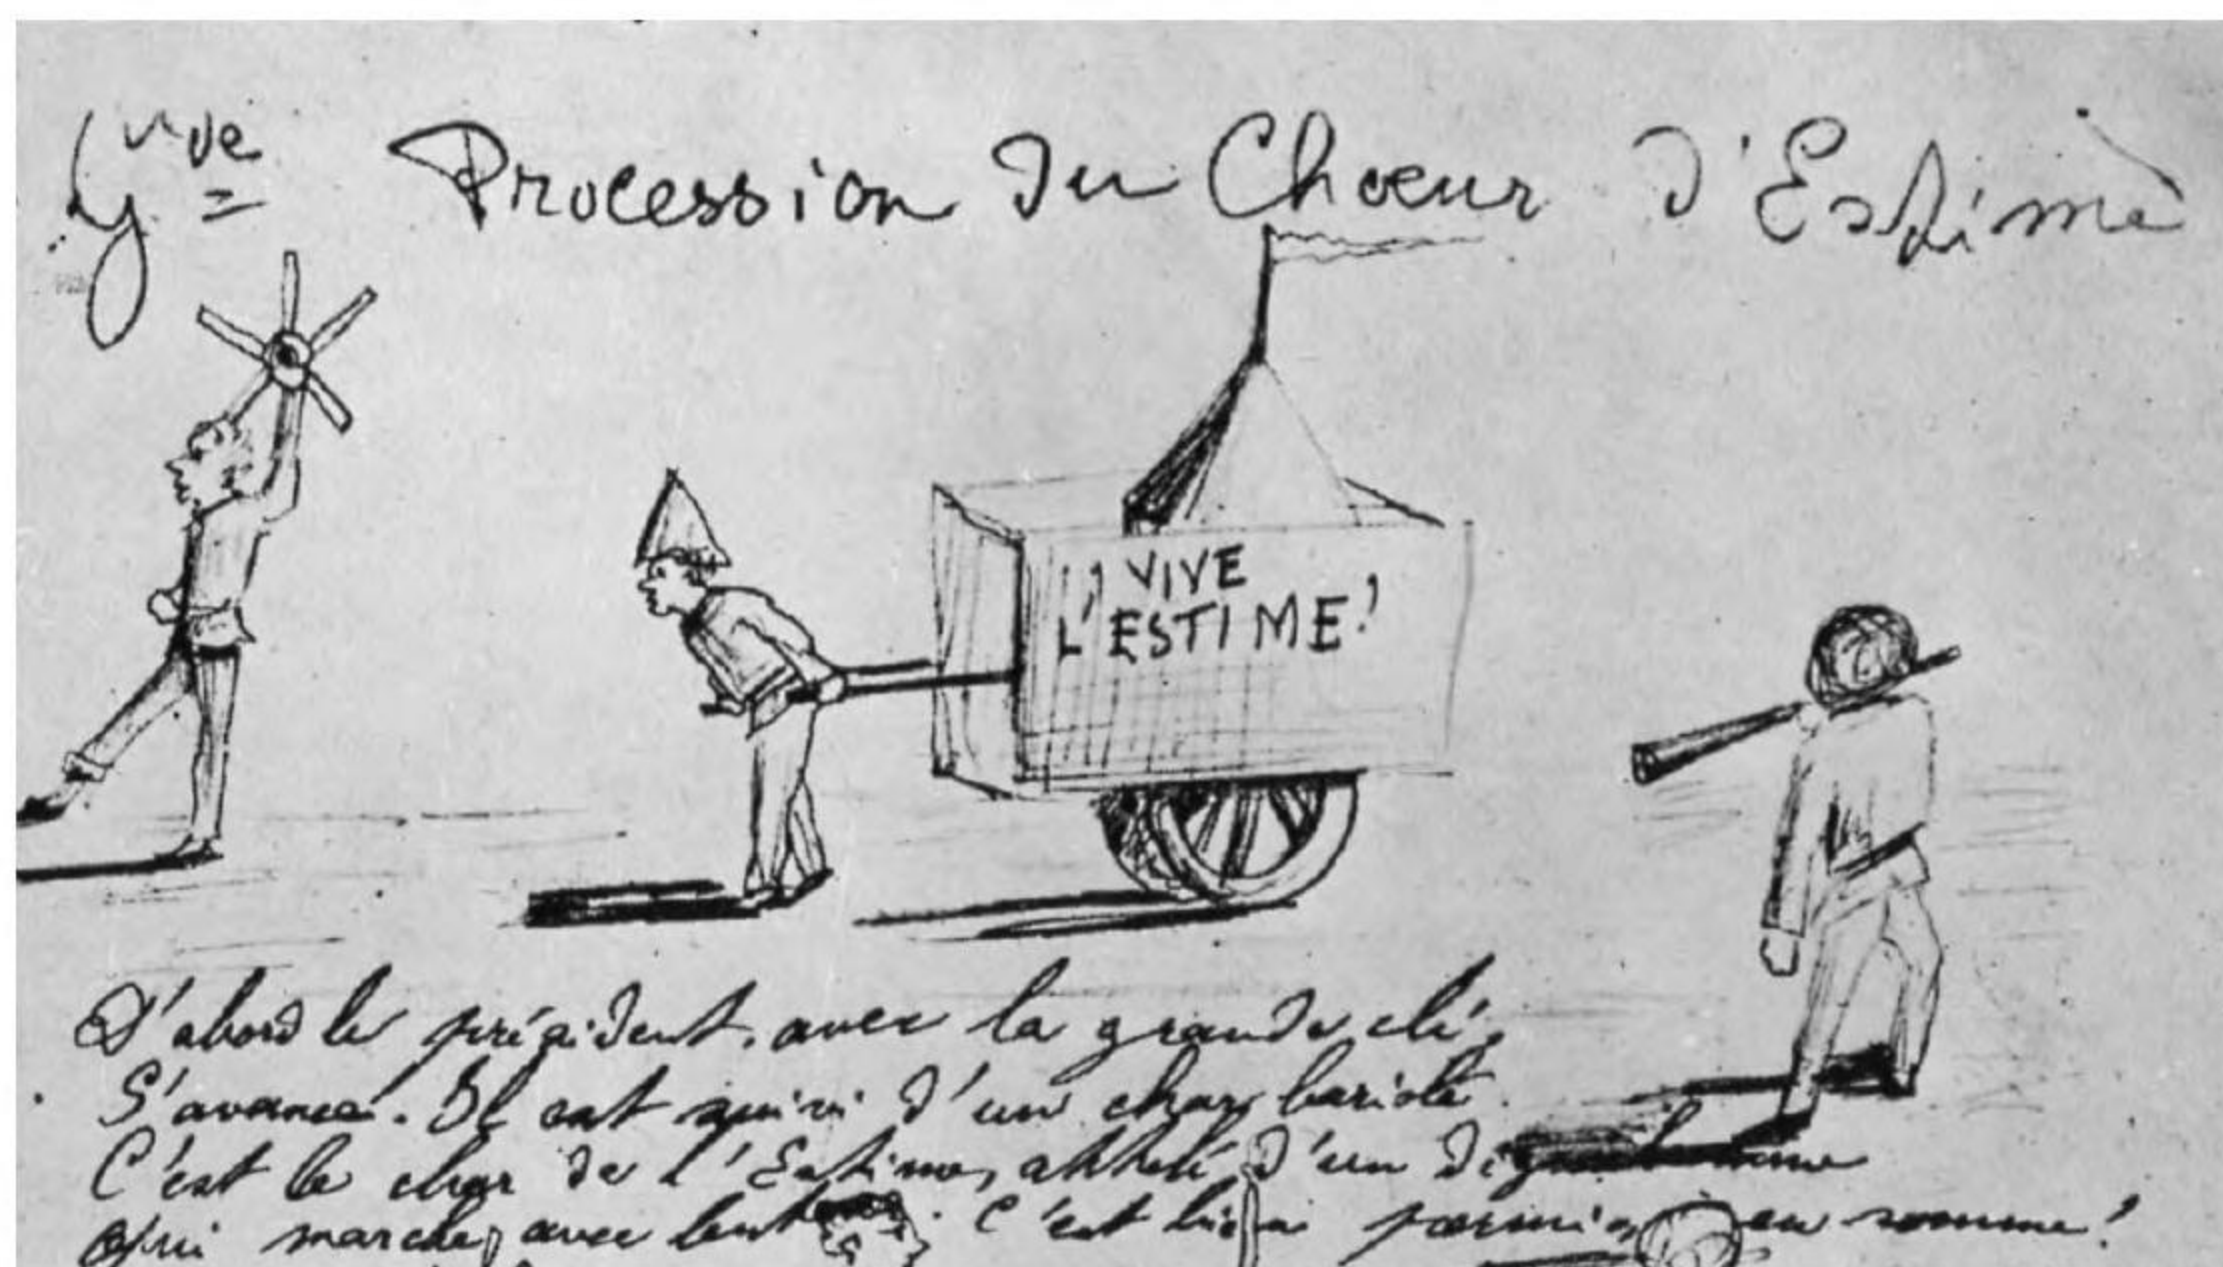 Gve Procession du Choeur d'Estime
VIVE
L'ESTIME!
D'abord le président, avec la grande clé,
S'avance. Il est suivi d'un char bariolé.
C'est le char de l'Estime, attelé d'un digne homme
Qui marche avec C'est bien permis, en somme!